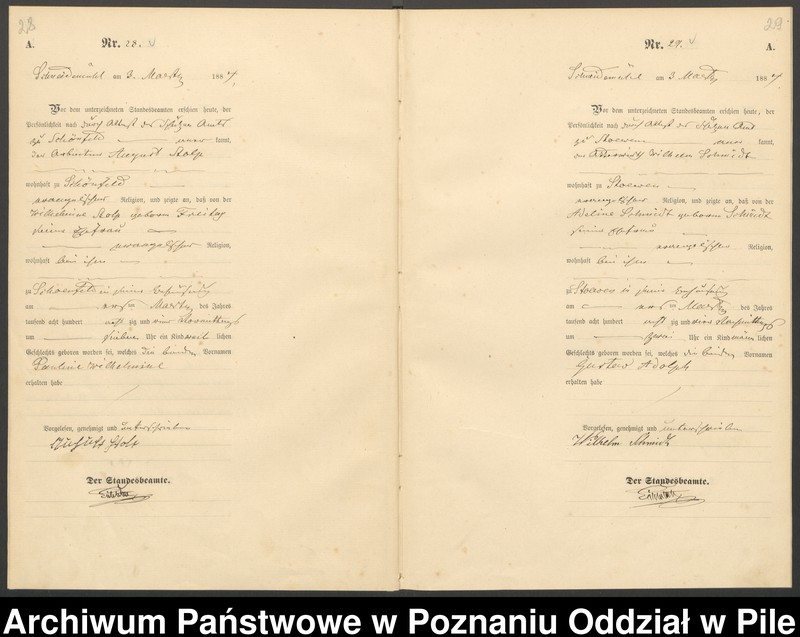 28
A. Nr. 28.
Schneidemühl am 3. Maerz 1884,
Vor dem unterzeichneten Standesbeamten erschien heute, der
Persönlichkeit nach durch Attest des Schulzen Amts
zu Schönfeld kannt,
der Arbeiter August Stolp
wohnhaft zu Schönfeld
evangelischer Religion, und zeigte an, daß von der
Wilhelmine Stolp geborene Freitag
seine Ehefrau
evangelischer Religion,
wohnhaft bei ihm
zu Schoenfeld in seiner Behausung
am Maerz des Jahres
tausend acht hundert acht zig und vier Vormittags
um sieben Uhr ein Kind weib lichen
Geschlechts geboren worden sei, welches die beiden Vornamen
Pauline Wilhelmine
erhalten habe
Vorgelesen, genehmigt und unterschrieben
August Stolp
Der Standesbeamte.
29
Nr. 29. A.
Schneidemühl am 3 Maerz 1884,
Vor dem unterzeichneten Standesbeamten erschien heute, der
Persönlichkeit nach durch Attest des Schulzen Amt
zu Stoewen kannt,
der Wilhelm Schmidt
wohnhaft zu Stoewen
evangelischer Religion, und zeigte an, daß von der
Adeline Schmidt geborene Schmidt
seine Ehefrau
evangelischer Religion,
wohnhaft bei ihm
zu Stoewen in seiner Behausung
am Maerz des Jahres
tausend acht hundert acht zig und vier Nachmittags
um zwei Uhr ein Kind männ lichen
Geschlechts geboren worden sei, welches die beiden Vornamen
Gustav Adolph
erhalten habe
Vorgelesen, genehmigt und unterschrieben
Wilhelm Schmidt
Der Standesbeamte.
Archiwum Państwowe w Poznaniu Oddział w Pile